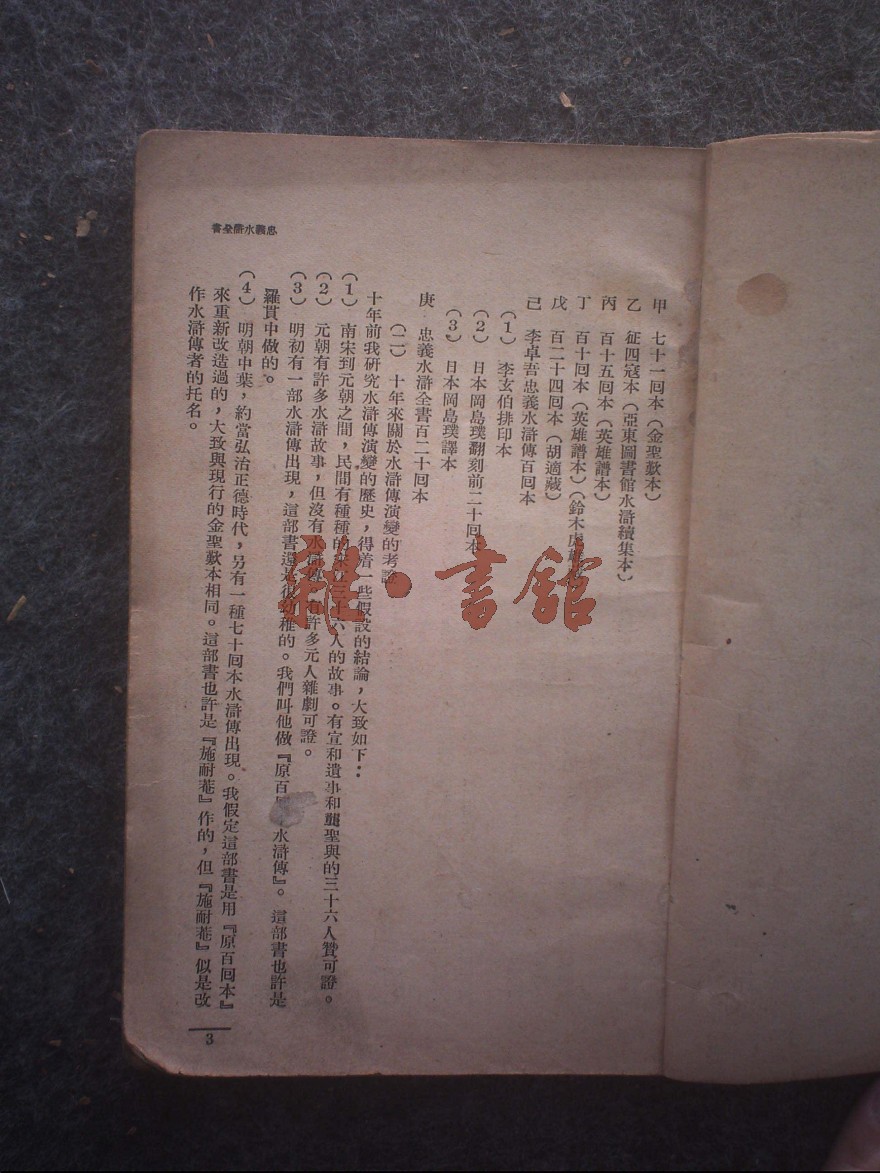 忠義水滸全書
甲　七十一回本（金聖歎本）
乙　征四寇本（亞東圖書館水滸續集本）
丙　百十五回本（英雄譜本）
丁　百十回本（英雄譜本）（鈴木虎
戊　百二十四回本（胡適藏）
己　李卓吾忠義水滸傳百回本
（1）　李玄伯排印本
（2）　日本岡島璞翻刻前二十回本
（3）　日本岡島璞譯本
庚　忠義水滸全書百二十回本
（二）　十年來關於水滸傳演變的考證
十年前我研究水滸傳演變的歷史，得着一些假設的結論，大致如下：
（1）　南宋到元朝之間，民間有種種的宋江三十六人的故事。有宣和遺事和龔聖與的三十六人贊可證。
（2）　元朝有許多水滸故事，但沒有水滸傳。有許多元人雜劇可證。
（3）　明初有一部水滸傳出現，這部書還是很幼稚的。我們叫他做『原百回本水滸傳』。這部書也許是
羅貫中做的。
（4）　明朝中葉，約當弘治正德時代，另有一種七十回本水滸傳出現。我假定這部書是用『原百回本』
來重新改造過的，大致與現行的金聖歎本相同。這部書也許是『施耐菴』作的，但『施耐菴』似是改
作水滸傳者的托名。
3
雜·書館